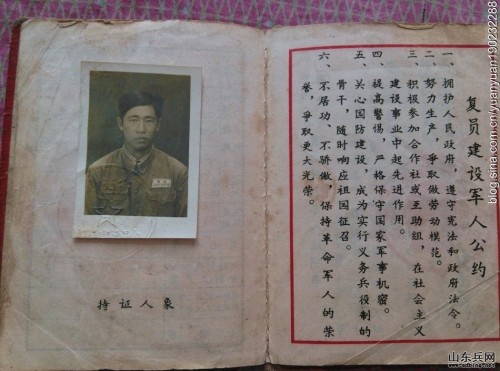 复员建设军人公约
一、拥护人民政府，遵守宪法和政府法令。
二、努力生产，争取做劳动模范。
三、积极参加合作社或互助组，在社会主义
建设事业中起先进作用。
四、提高警惕，严格保守国家军事机密。
五、关心国防建设，成为实行义务兵役制的
骨干，随时响应祖国征召。
六、不居功、不骄傲，保持革命军人的荣
誉，争取更大光荣。
持证人象
blog.sina.com.cn/yranyuan190232288
山东兵网